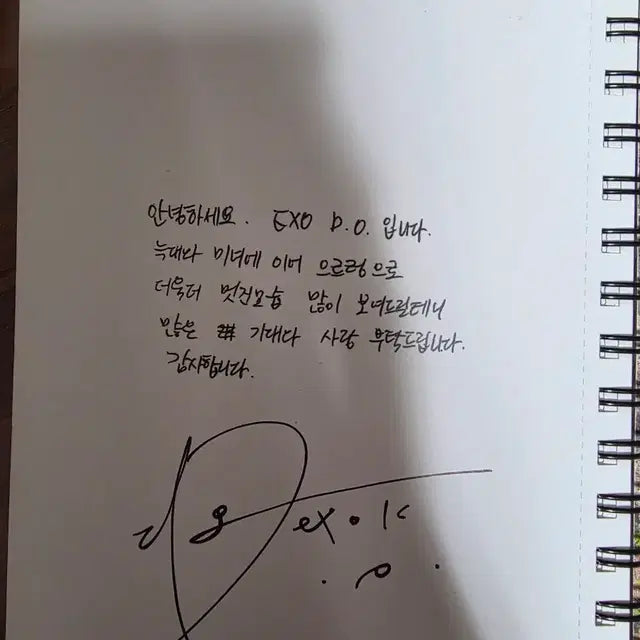 안녕하세요. EXO D.O. 입니다.
늑대와 미녀에 이어 으르렁으로
더욱더 멋진모습 많이 보여드릴테니
많은 기대와 사랑 부탁드립니다.
감사합니다.
exo.K